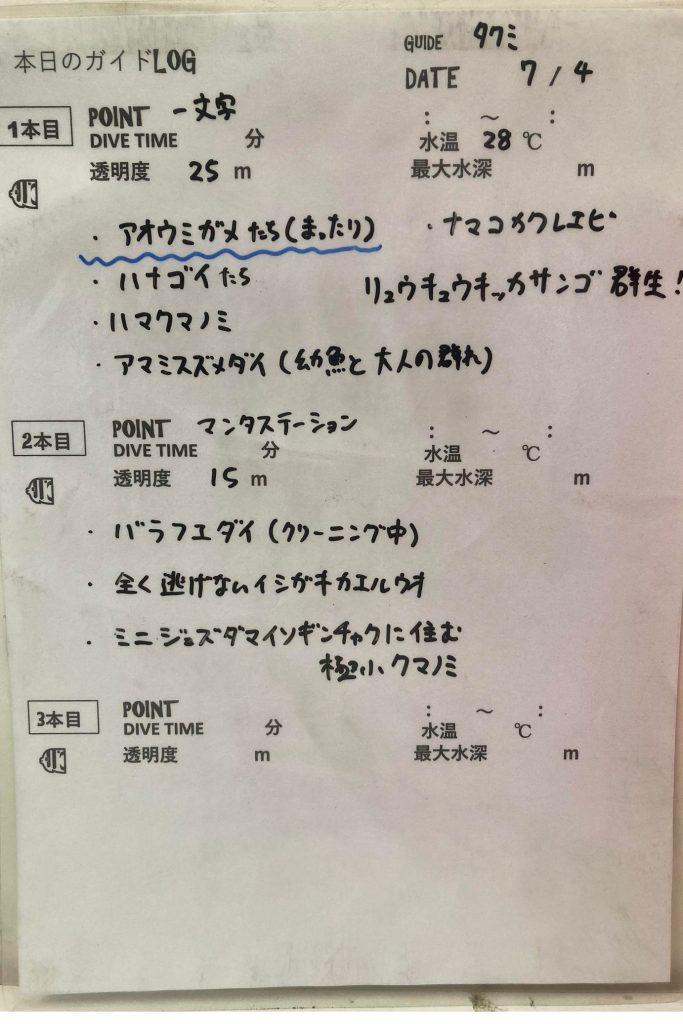 本日のガイドLOG
GUIDE タクミ
DATE 7 / 4
1本目 POINT 一文字 : ～ :
DIVE TIME 分 水温 28 ℃
透明度 25 m 最大水深 m
・アオウミガメたち(まったり) ・ナマコカクレエビ
・ハナゴイたち リュウキュウキッカサンゴ 群生!
・ハマクマノミ
・アマミスズメダイ (幼魚と大人の群れ)
2本目 POINT マンタステーション : ～ :
DIVE TIME 分 水温 ℃
透明度 15 m 最大水深 m
・バラフエダイ (クリーニング中)
・全く逃げないイシガキカエルウオ
・ミニジュズダマイソギンチャクに住む
極小クマノミ
3本目 POINT : ～ :
DIVE TIME 分 水温 ℃
透明度 m 最大水深 m